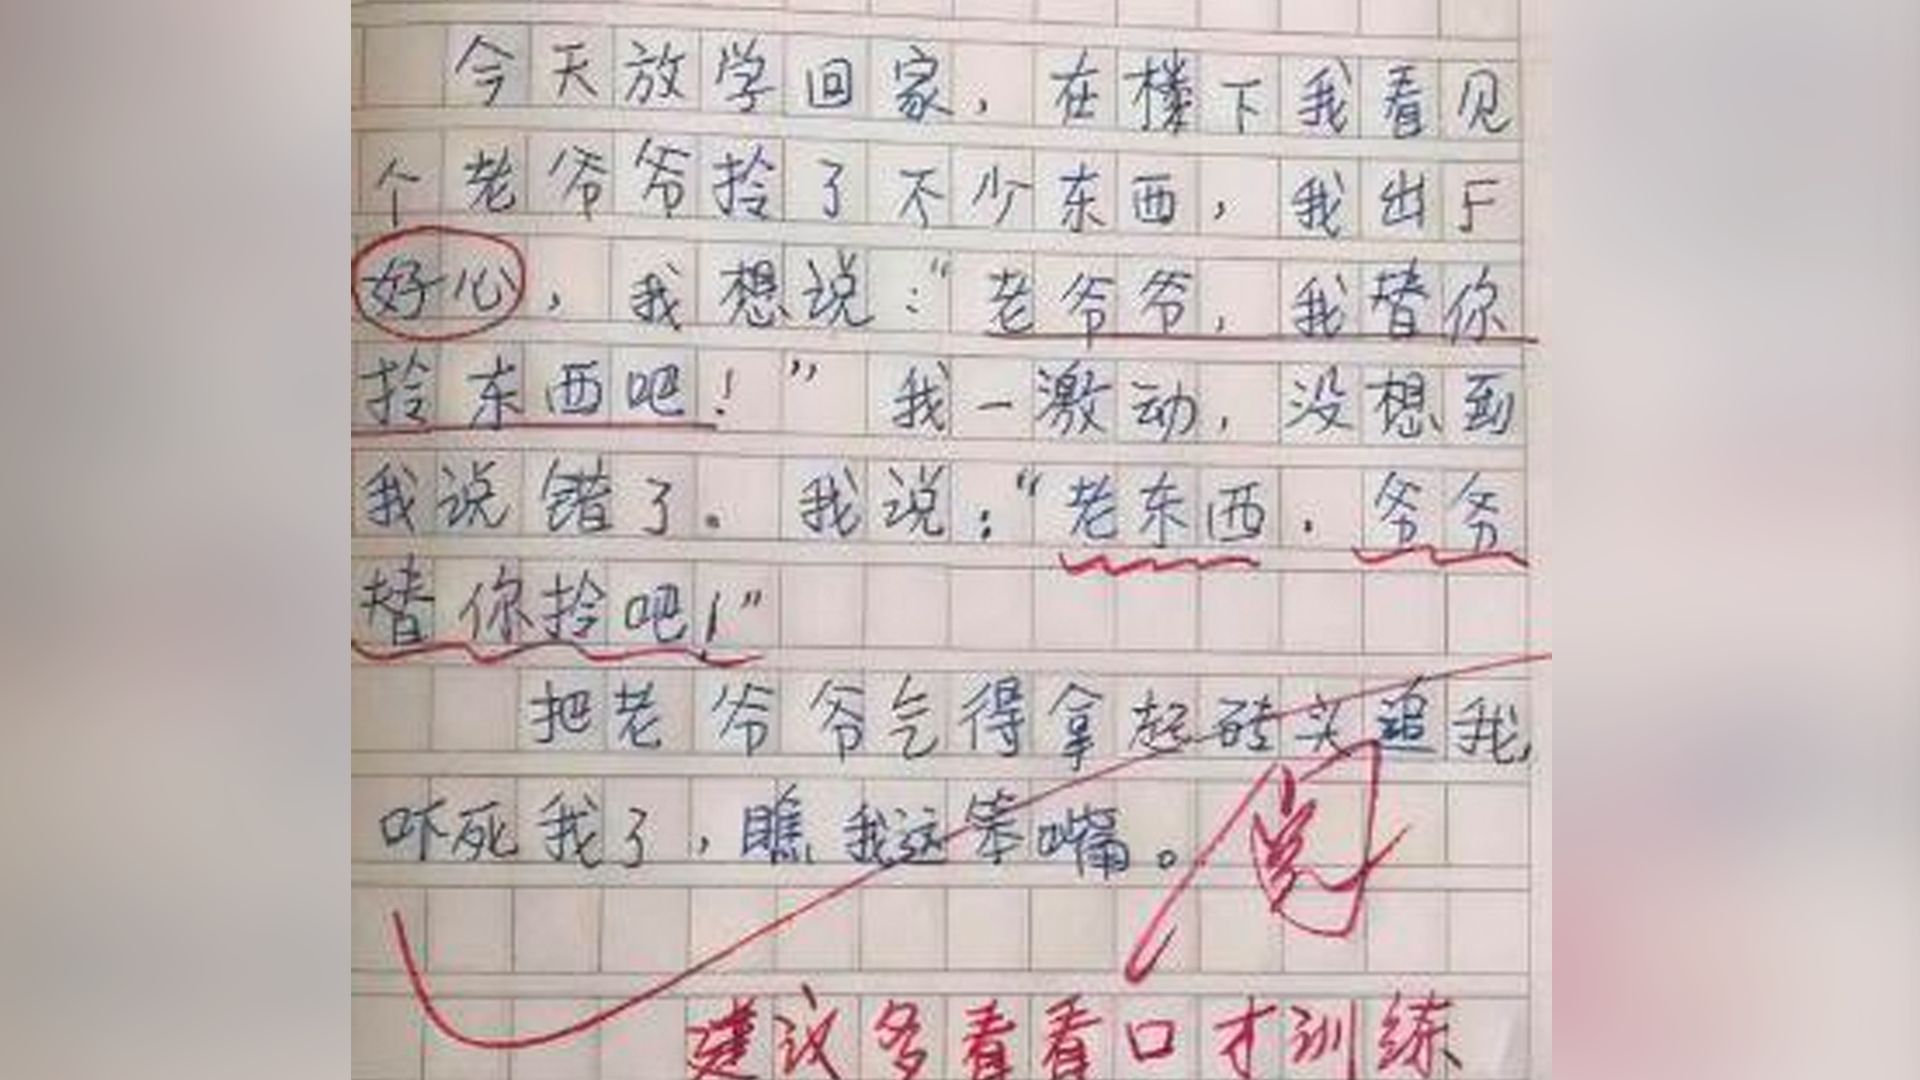 今天放学回家，在楼下我看见
个老爷爷拎了不少东西，我出于
好心，我想说：“老爷爷，我替你
拎东西吧！”我一激动，没想到
我说错了。我说：“老东西．爷爷
替你拎吧！”
把老爷爷气得拿起砖头追我，
吓死我了，瞧我这笨嘴。
阅
建议多看看口才训练